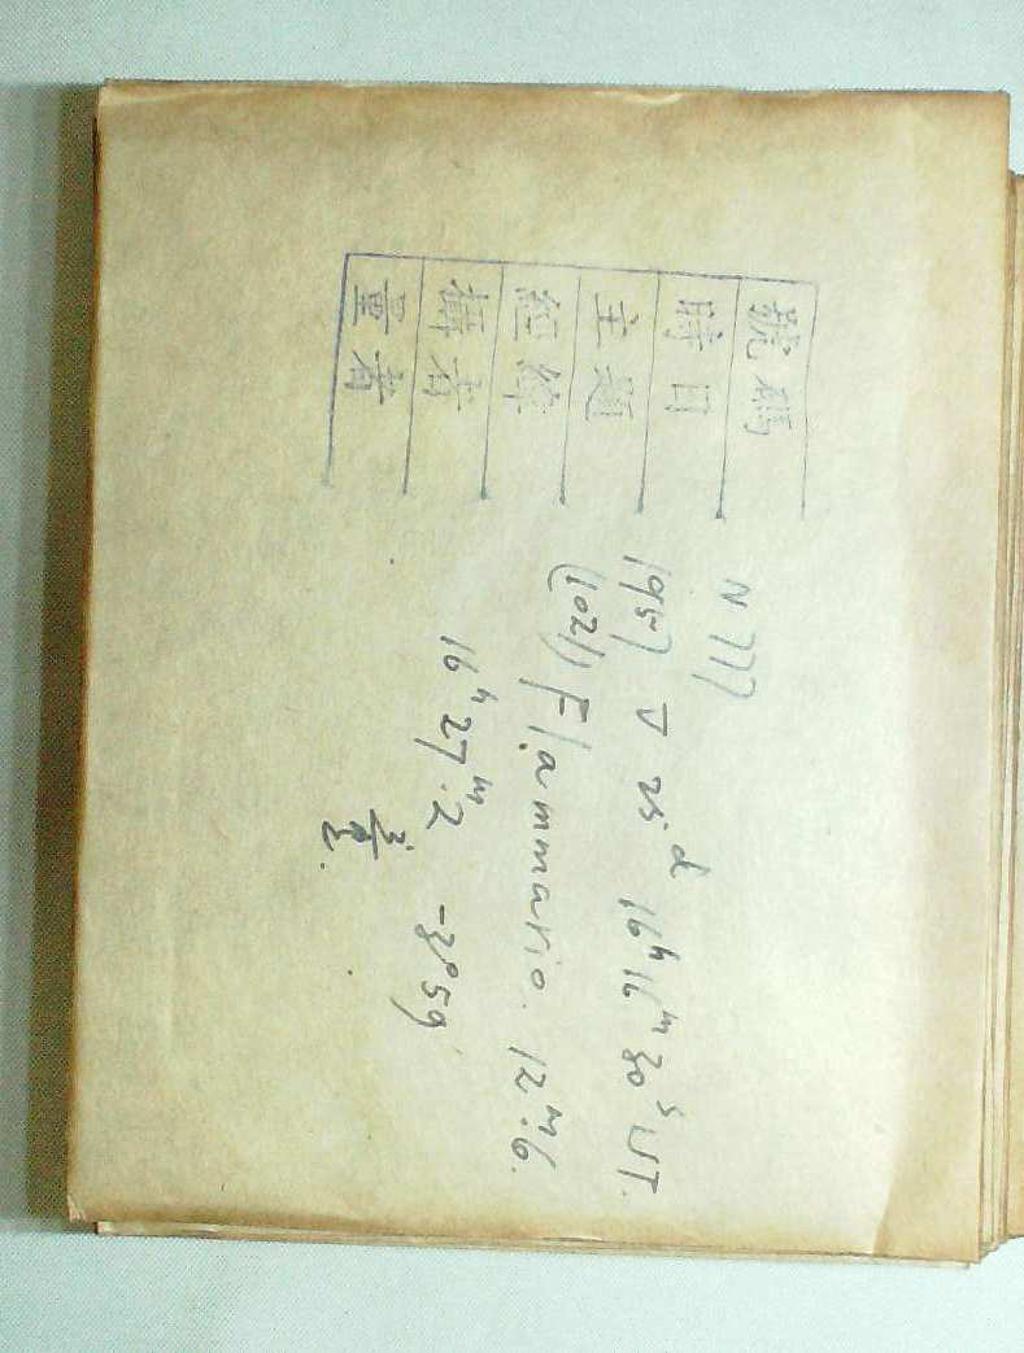 號碼 N 777
時日 1957 V 25ᵈ 16ʰ 16ᵐ 30ˢ UT.
主題 (1021) Flammario. 12ᵐ.6.
經緯 16ʰ 27ᵐ.2 -3°59'
攝者
量者